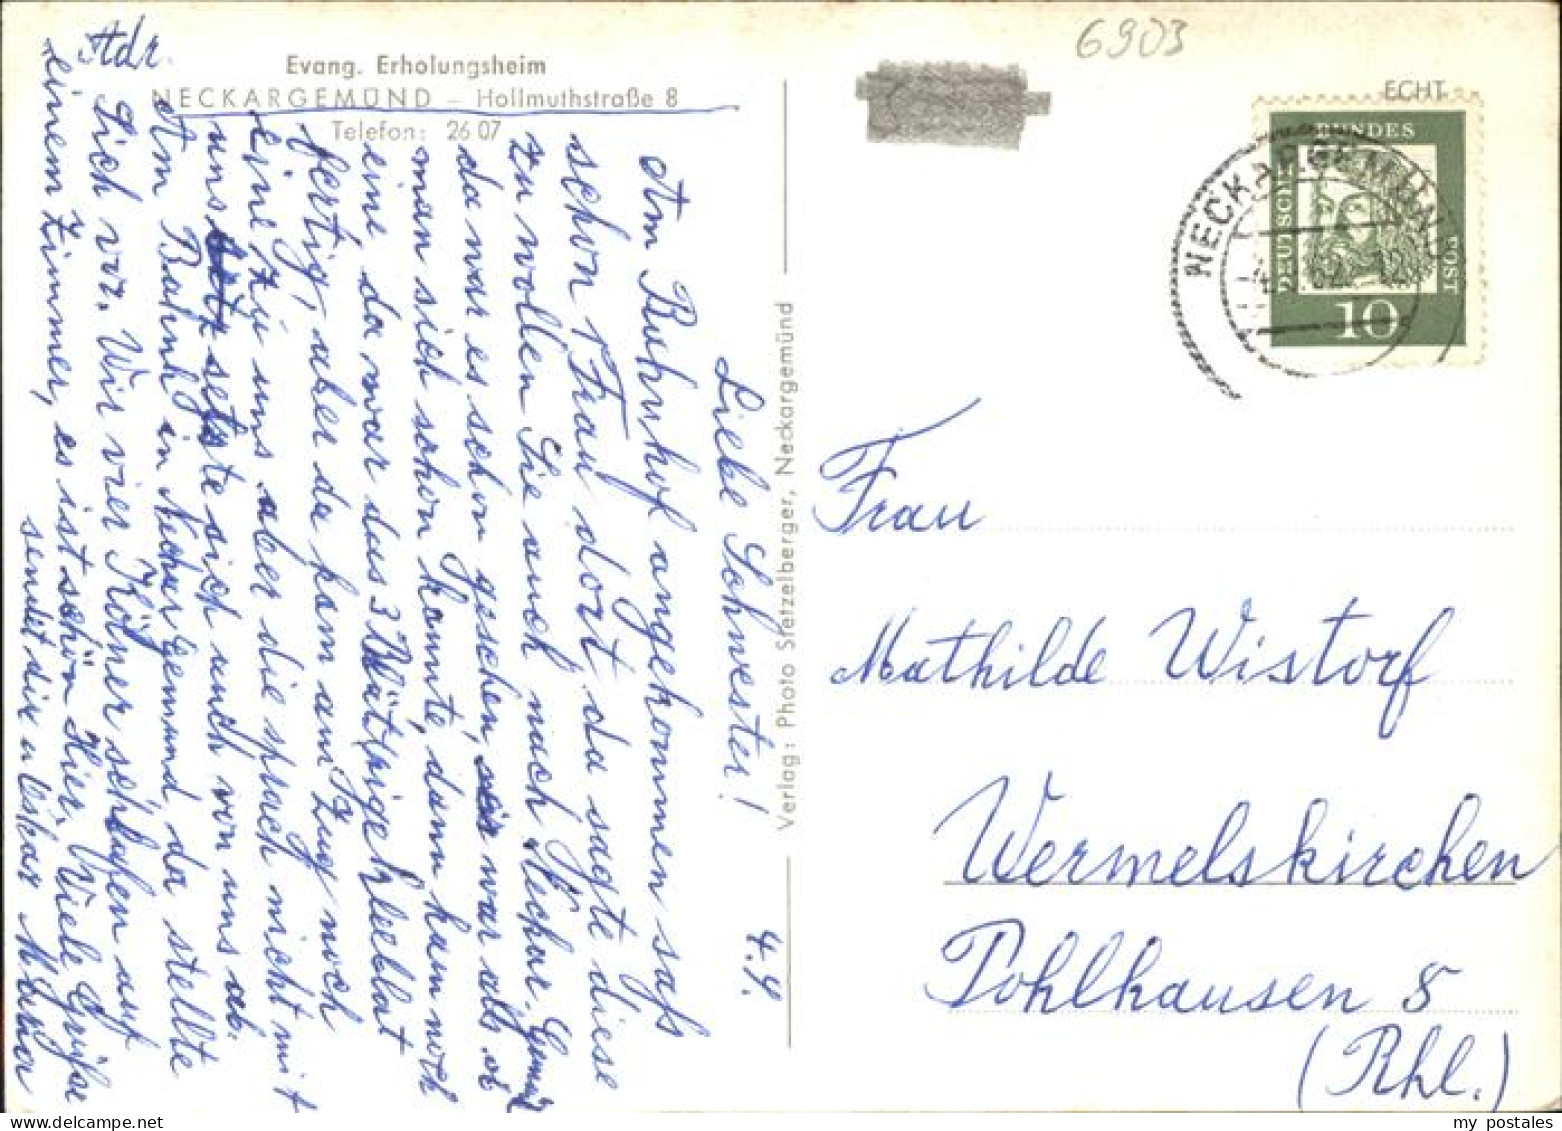 Adr.
Evang. Erholungsheim
NECKARGEMÜND – Hollmuthstraße 8
Telefon: 26 07
4.4.
Liebe Schwester!
Am Buhnhof angekommen saß
schon 1 Frau dort, da sagte diese
zu wollen Sie auch nach Neckar-Gemünd
da war es schon geschen, war als ob
man sich schon kannte, dann kam noch
eine, da war das 3 Blättrige Kleeblat
fertig, aber da kam am Zug noch
eine zu uns aber die sprach nicht mit
uns setste sich auch von uns ab.
Am Bahnh in Neckargemünd, da stellte
Sich vor. Wir vier Kölner schlafen auf
einem Zimmer, es ist schön hier. Viele Grüße
sendet dir u Oskar Maria
Verlag: Photo Stetzelberger, Neckargemünd
6903
ECHT
DEUTSCHE BUNDESPOST
10
NECKARGEMÜND
Frau
Mathilde Wistorf
Wermelskirchen
Pohlhausen 8
(Rhl.)
my postales